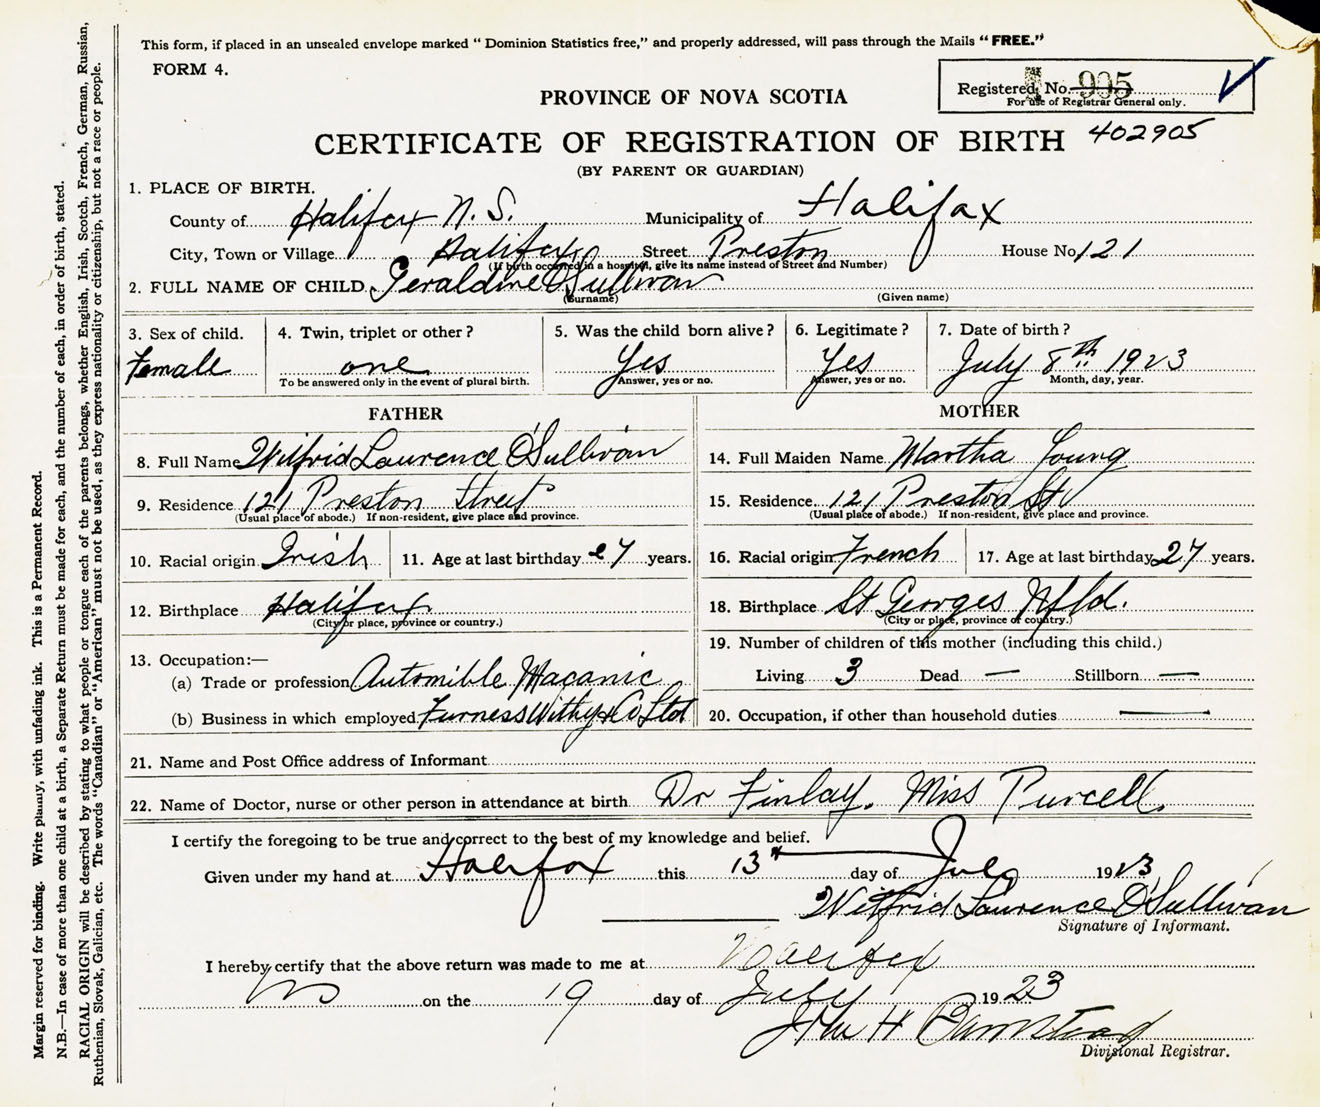 This form, if placed in an unsealed envelope marked "Dominion Statistics free," and properly addressed, will pass through the Mails "FREE."
FORM 4.
Registered No. 905
For use of Registrar General only.
PROVINCE OF NOVA SCOTIA
CERTIFICATE OF REGISTRATION OF BIRTH 402905
(BY PARENT OR GUARDIAN)
1. PLACE OF BIRTH.
County of Halifax N.S. Municipality of Halifax
City, Town or Village Halifax Street Preston House No 121
(If birth occurred in a hospital, give its name instead of Street and Number)
2. FULL NAME OF CHILD Geraldine O'Sullivan
(Surname) (Given name)
3. Sex of child. 4. Twin, triplet or other? 5. Was the child born alive? 6. Legitimate? 7. Date of birth?
Female one Yes Yes July 8th 1923
To be answered only in the event of plural birth. Answer, yes or no. Answer, yes or no. Month, day, year.
FATHER
8. Full Name Wilfrid Laurence O'Sullivan
9. Residence 121 Preston Street
(Usual place of abode.) If non-resident, give place and province.
10. Racial origin Irish 11. Age at last birthday 27 years.
12. Birthplace Halifax
(City or place, province or country.)
13. Occupation:—
(a) Trade or profession Automible Macanic
(b) Business in which employed Furness Withy & Co Ltd
MOTHER
14. Full Maiden Name Martha Young
15. Residence 121 Preston St
(Usual place of abode.) If non-resident, give place and province.
16. Racial origin French 17. Age at last birthday 27 years.
18. Birthplace St Georges Nfld.
(City or place, province or country.)
19. Number of children of this mother (including this child.)
Living 3 Dead — Stillborn —
20. Occupation, if other than household duties —
21. Name and Post Office address of Informant
22. Name of Doctor, nurse or other person in attendance at birth Dr Finlay. Miss Purcell.
I certify the foregoing to be true and correct to the best of my knowledge and belief.
Given under my hand at Halifax this 13th day of July 1923
Wilfrid Laurence O'Sullivan
Signature of Informant.
I hereby certify that the above return was made to me at Halifax
NS on the 19 day of July 1923
John H Barnstead
Divisional Registrar.
Margin reserved for binding. Write plainly, with unfading ink. This is a Permanent Record.
N.B.—In case of more than one child at a birth, a Separate Return must be made for each, and the number of each, in order of birth, stated.
RACIAL ORIGIN will be described by stating to what people or tongue each of the parents belongs, whether English, Irish, Scotch, French, German, Russian,
Ruthenian, Slovak, Galician, etc. The words "Canadian" or "American" must not be used, as they express nationality or citizenship, but not a race or people.